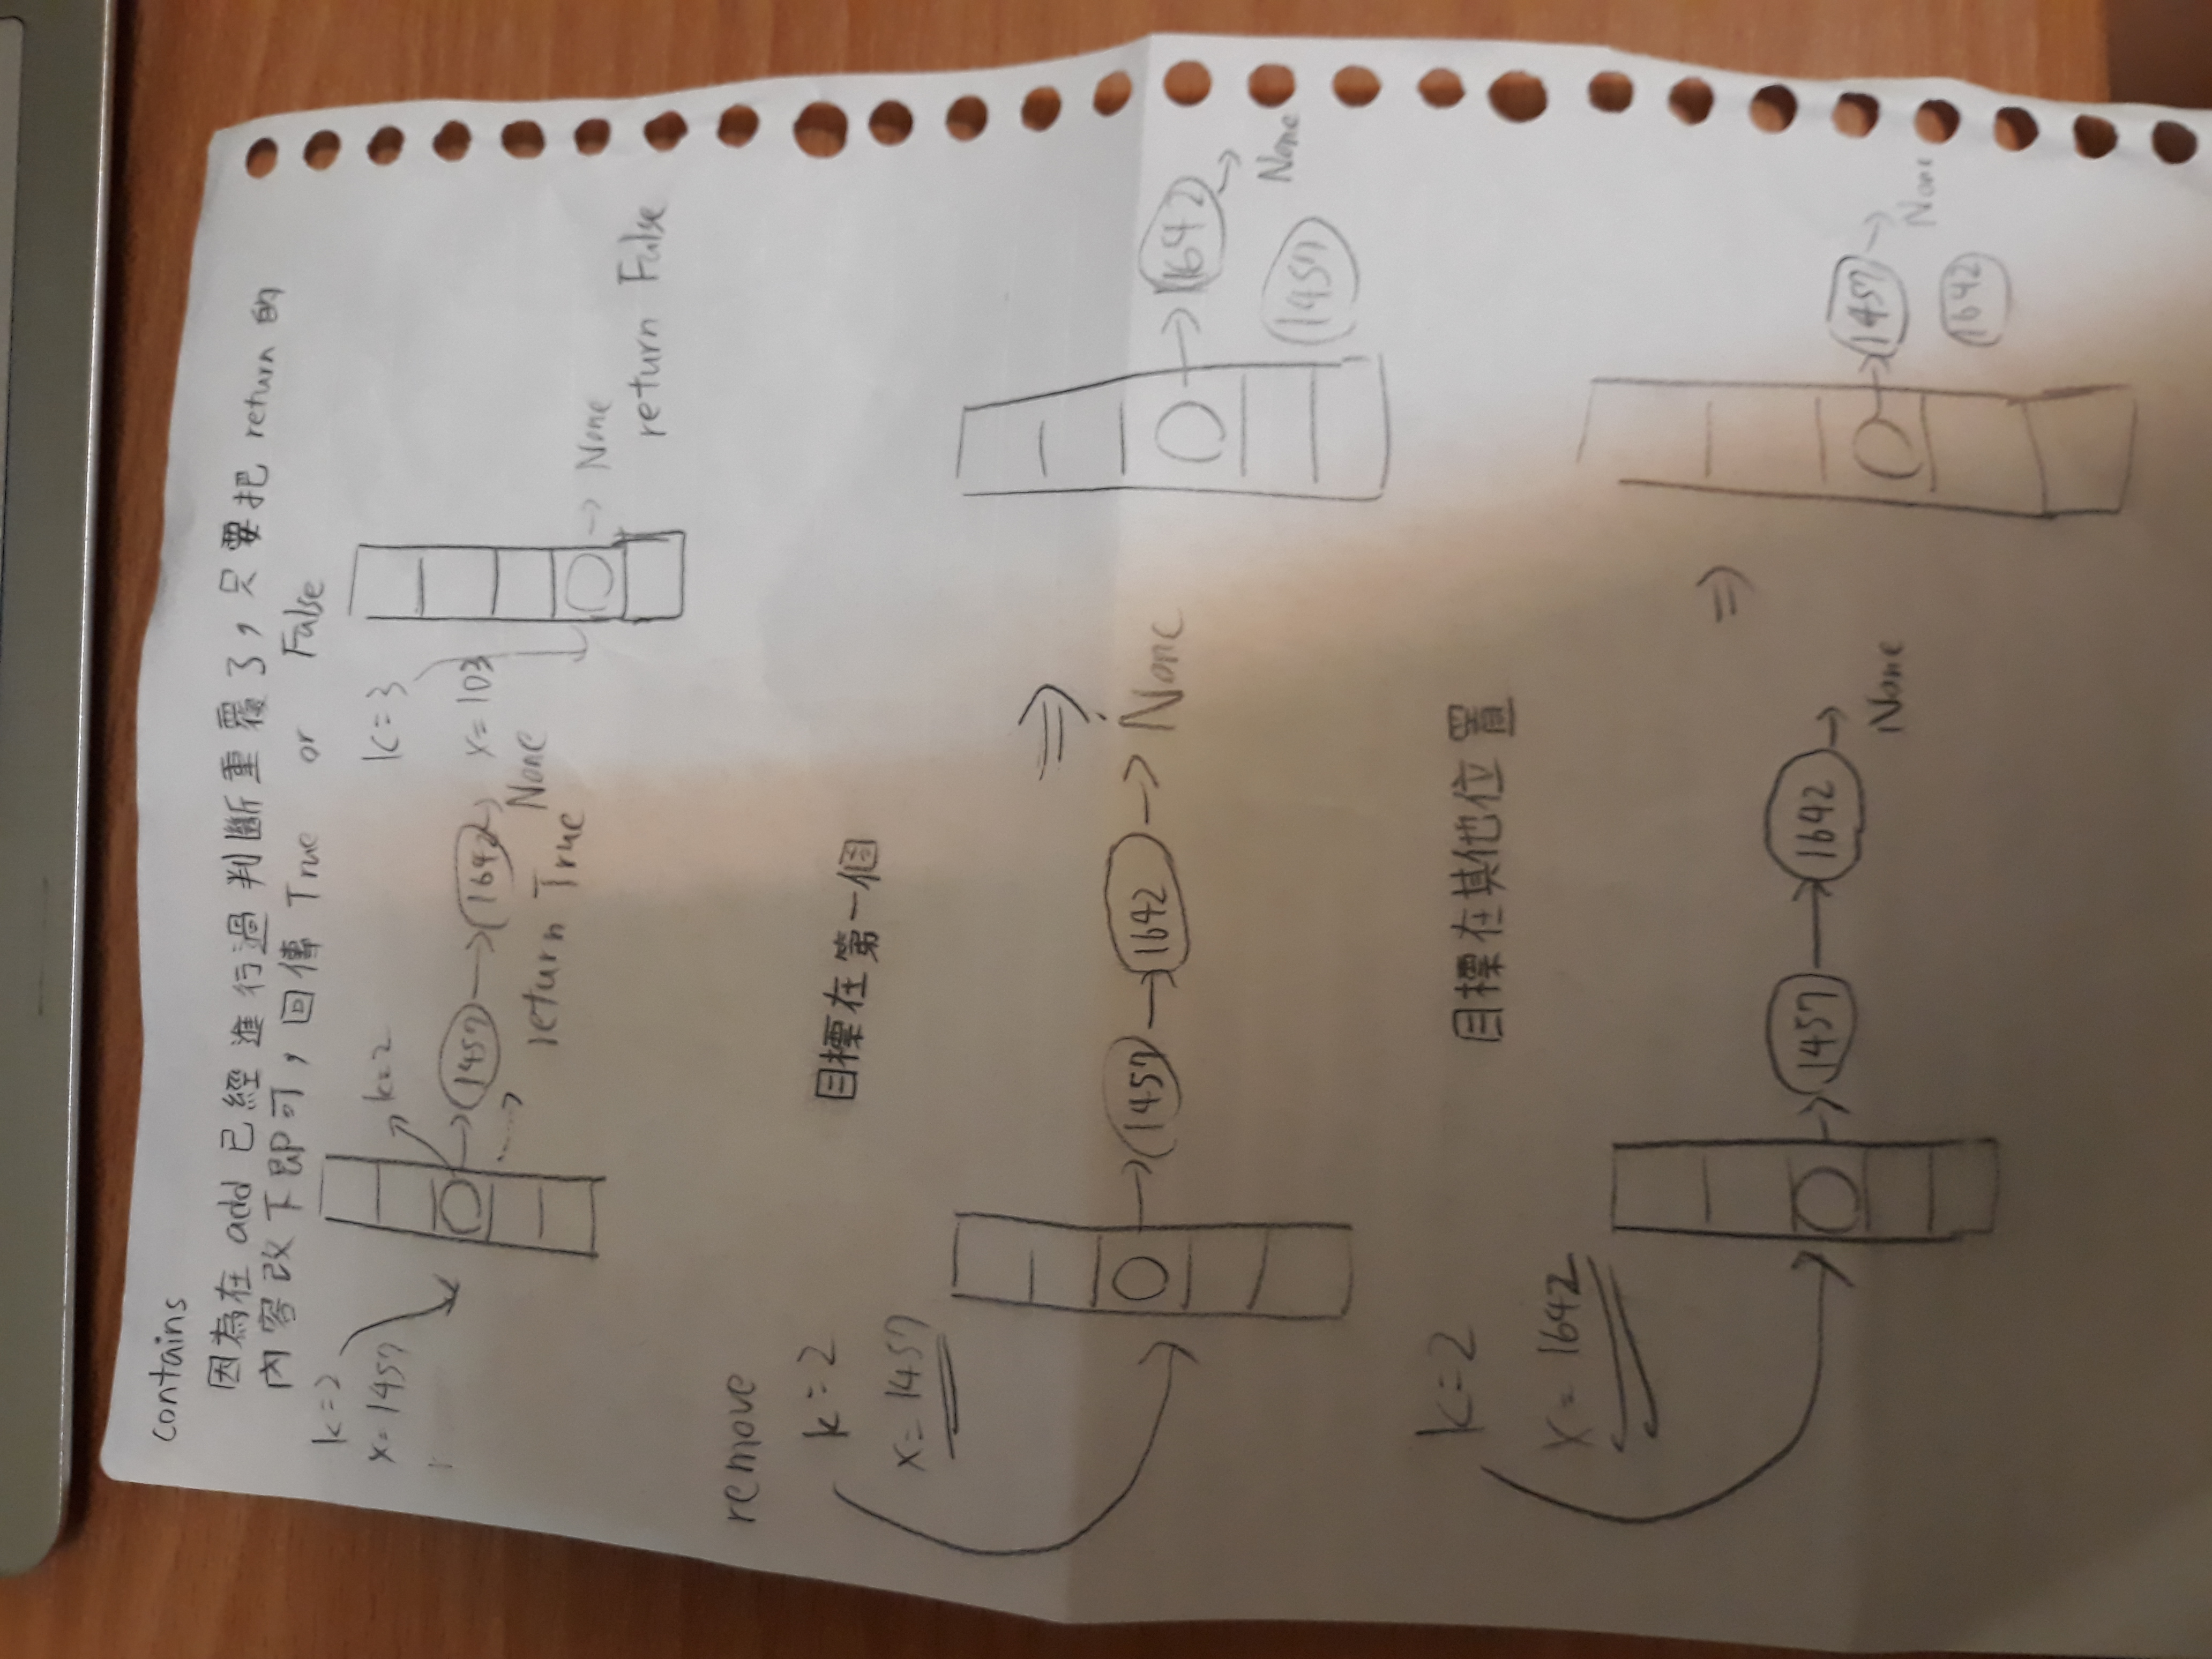 contains
因為在 add 已經進行過判斷重覆了，只要把 return 的
內容改下即可，回傳 True or False
k=2
x=1457
k=2
1457
1642
None
return True
k=3
x=103
None
return False
remove
k=2
目標在第一個
x=1457
1457
1642
None
1642
None
1457
k=2
目標在其他位置
x=1642
1457
1642
None
1457
None
1642